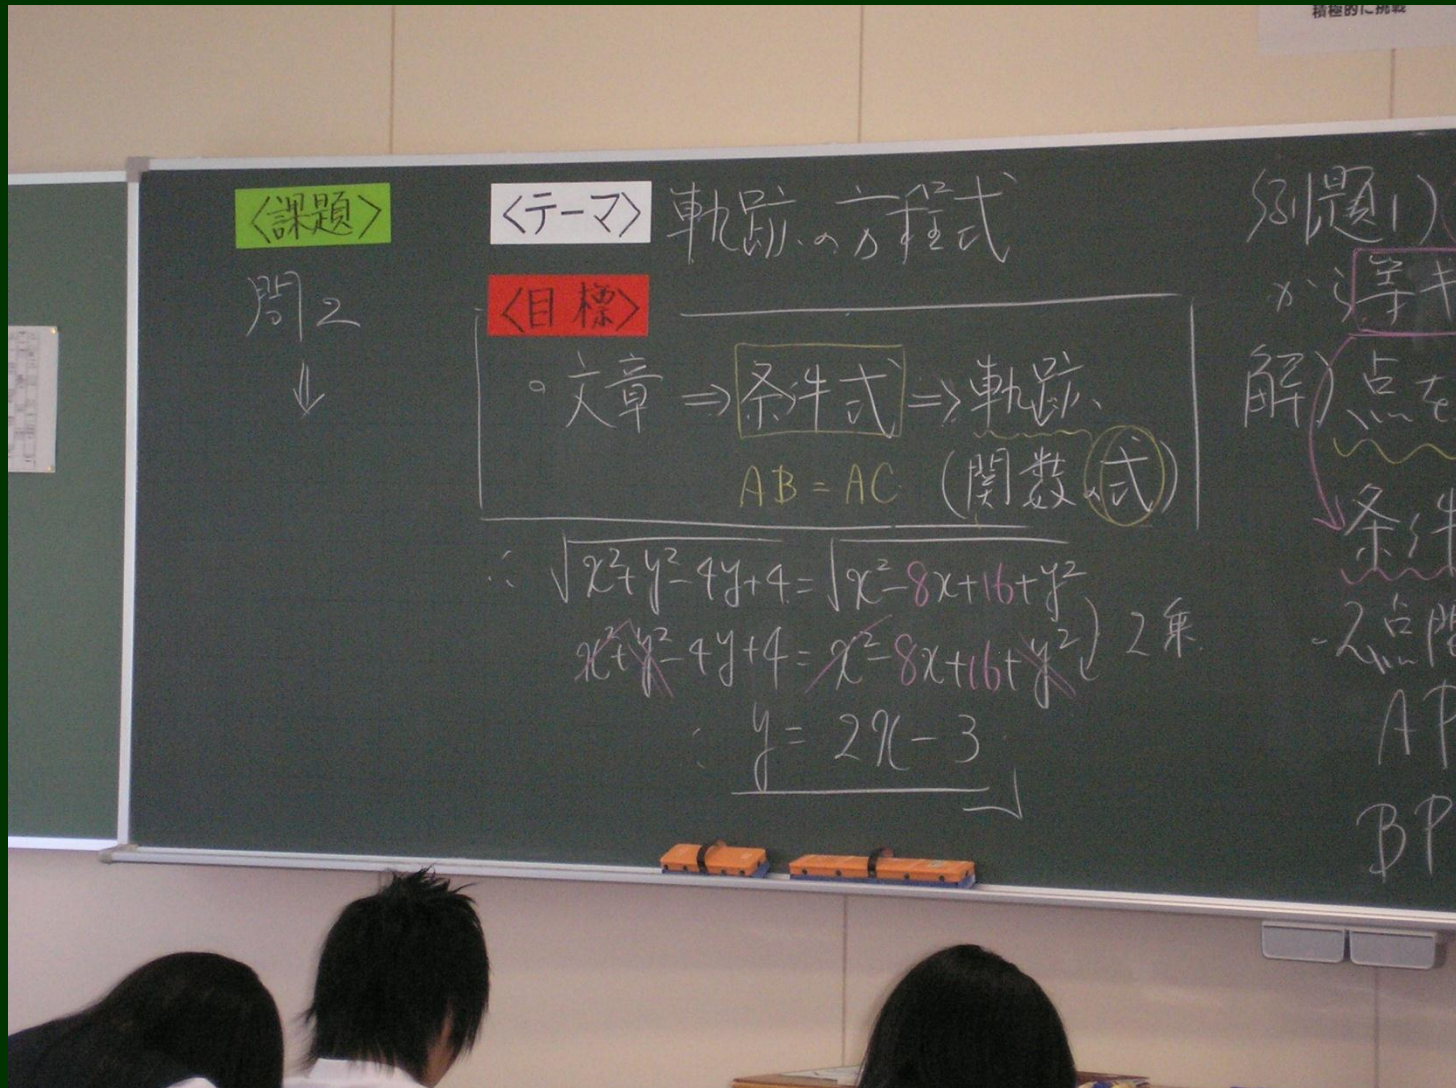 積極的に挑戦
〈課題〉
問2
⇓
〈テーマ〉 軌跡の方程式
〈目標〉
。文章 ⇒ 条件式 ⇒ 軌跡
AB = AC (関数の式)
∴ √x²+y²-4y+4 = √x²-8x+16+y²
x²+y²-4y+4 = x²-8x+16+y² 2乗
∴ y = 2x-3
例題1)
が等
解)点を
条件
2点間
AP
BP